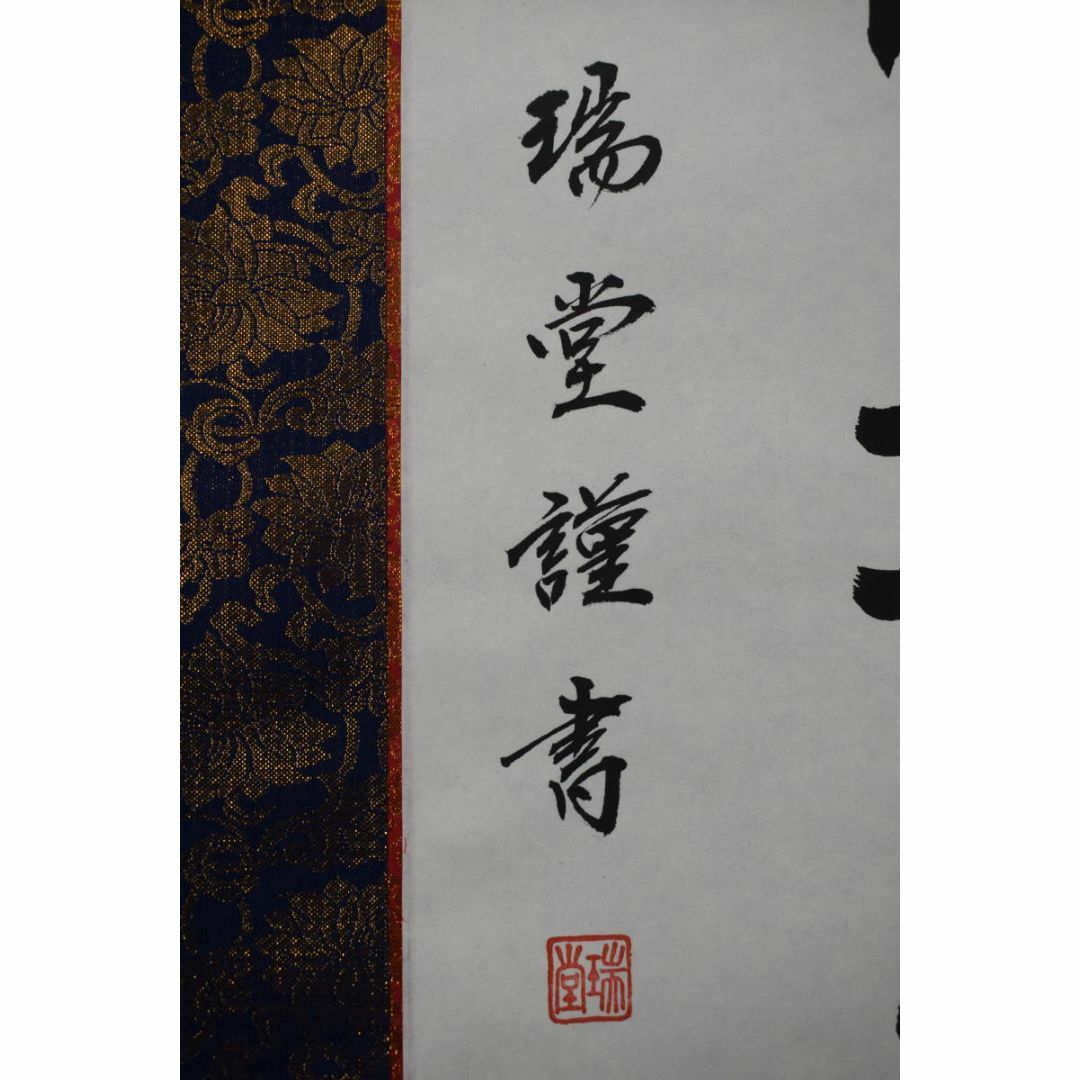 瑞堂謹書
瑞堂